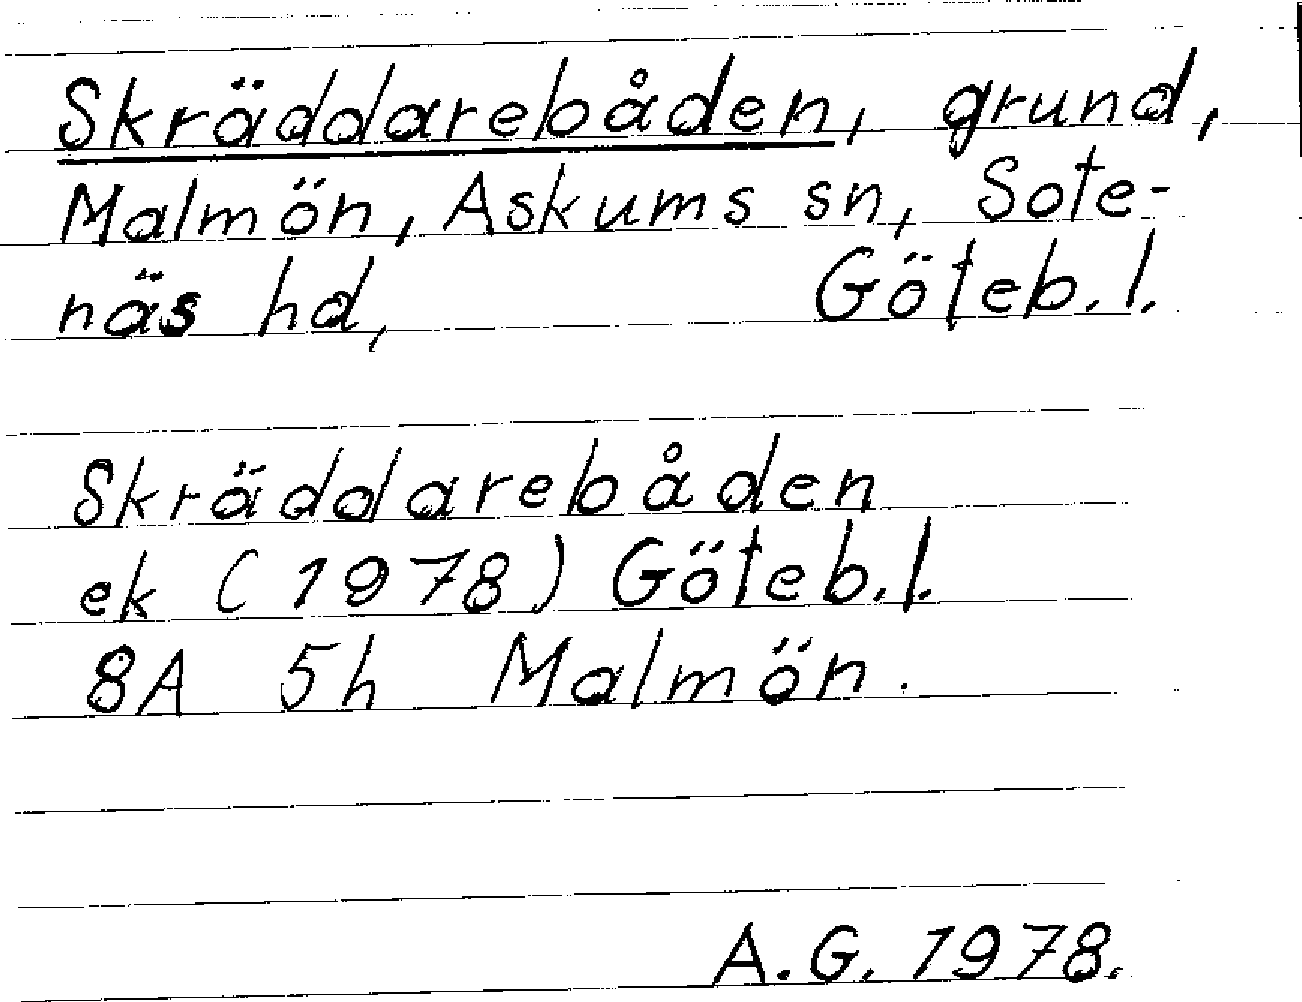 Skräddarebåden, grund,
Malmön, Askums sn, Sote-
näs hd, Göteb. l.
Skräddarebåden
ek (1978) Göteb. l.
8A 5h Malmön.
A. G. 1978.